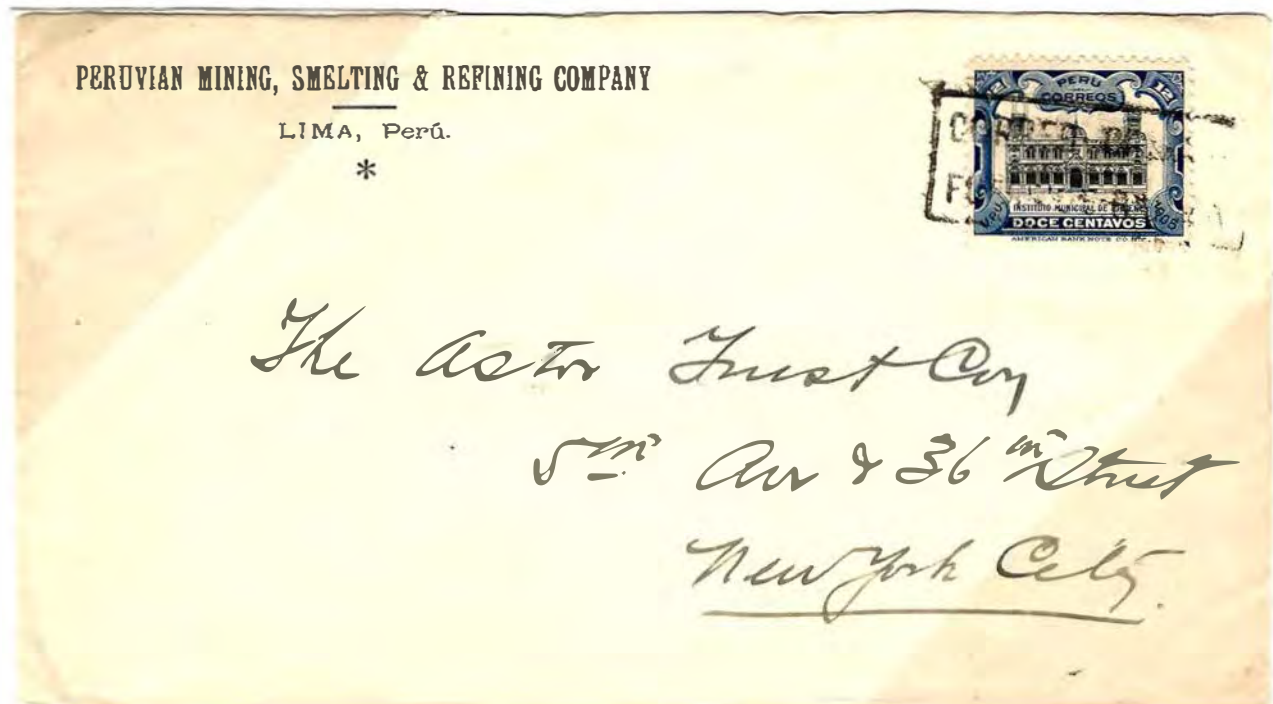 PERUVIAN MINING, SMELTING & REFINING COMPANY
LIMA, Perú.
*
12 PERU 12
CORREOS
INSTITUTO MUNICIPAL DE
U.P.U. 1905
DOCE CENTAVOS
AMERICAN BANK NOTE CO. N.Y.
The Astor Trust Coy
5th Ave & 36th Street
New York City.